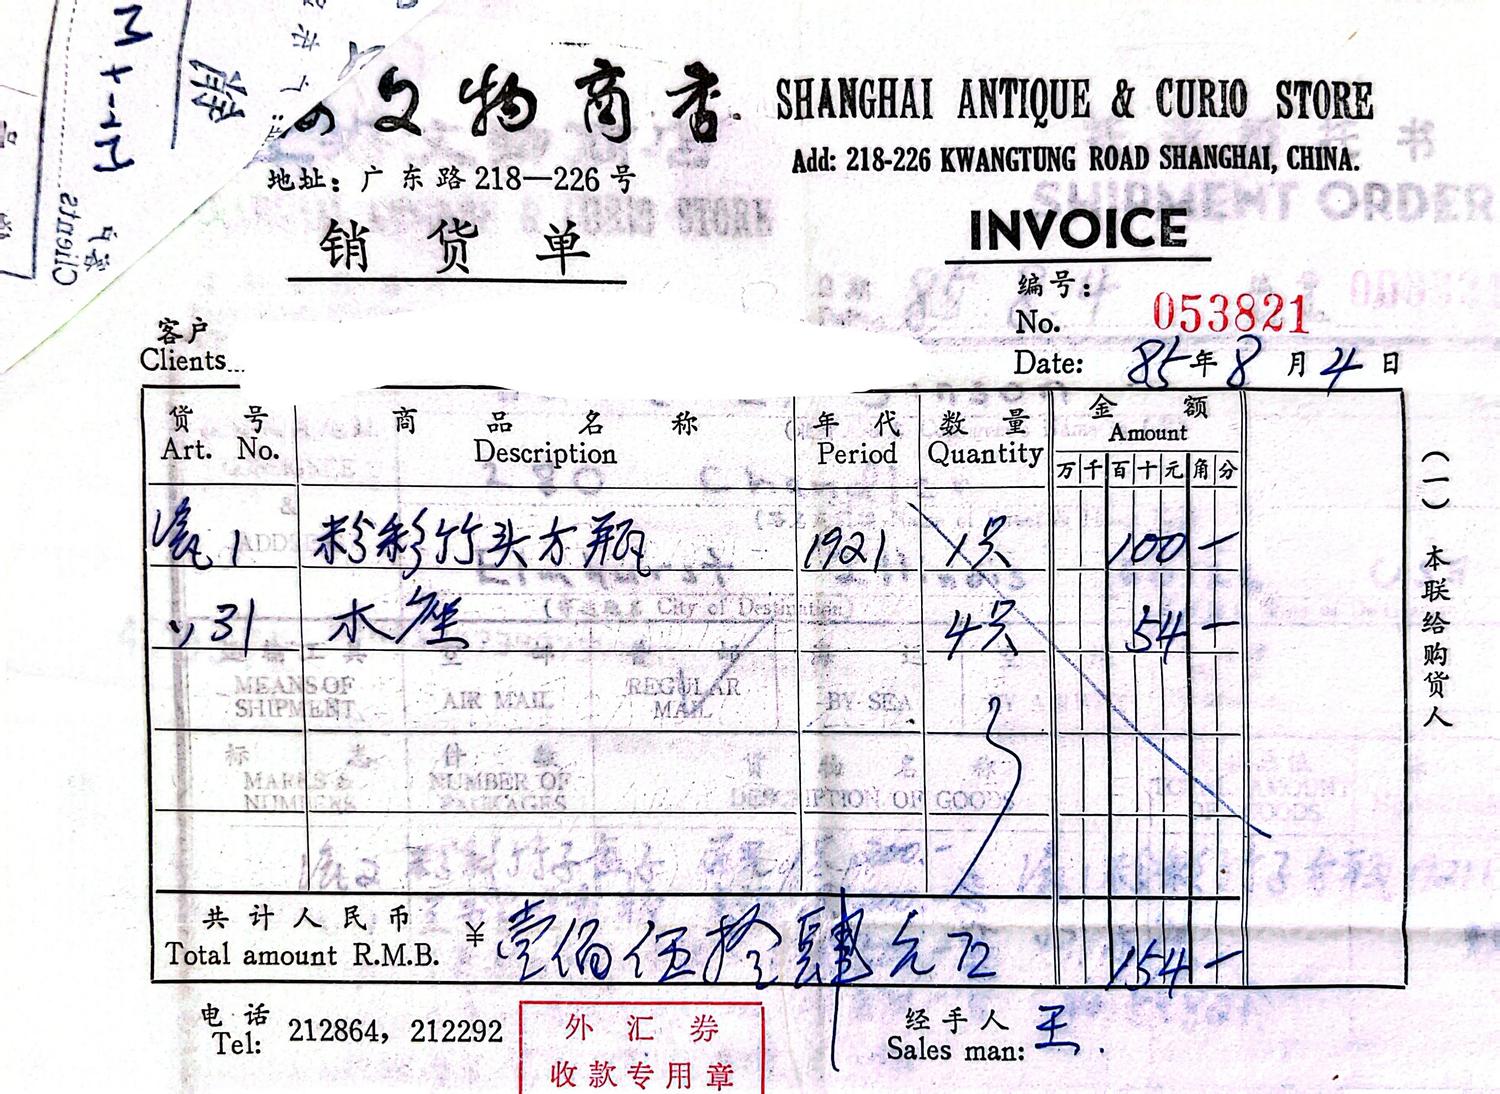 文物商店 SHANGHAI ANTIQUE & CURIO STORE
地址：广东路218—226号 Add: 218-226 KWANGTUNG ROAD SHANGHAI, CHINA.
销货单 INVOICE
编号：
No. 053821
客户
Clients
Date: 85年8月4日
货号 商品名称 年代 数量 金额
Art. No. Description Period Quantity Amount
万千百十元角分
1 粉彩竹头方瓶 1921 1只 100 —
〃31 木座 4只 54 —
共计人民币
Total amount R.M.B. ¥壹佰伍拾肆元 154 —
电话
Tel: 212864, 212292
外汇券
收款专用章
经手人
Sales man: 王.
（一）本联给购货人
SHIPMENT ORDER
City of Destination
MEANS OF SHIPMENT AIR MAIL REGULAR MAIL BY SEA
MARKS & NUMBERS NUMBER OF PACKAGES DESCRIPTION OF GOODS
Clients
客户